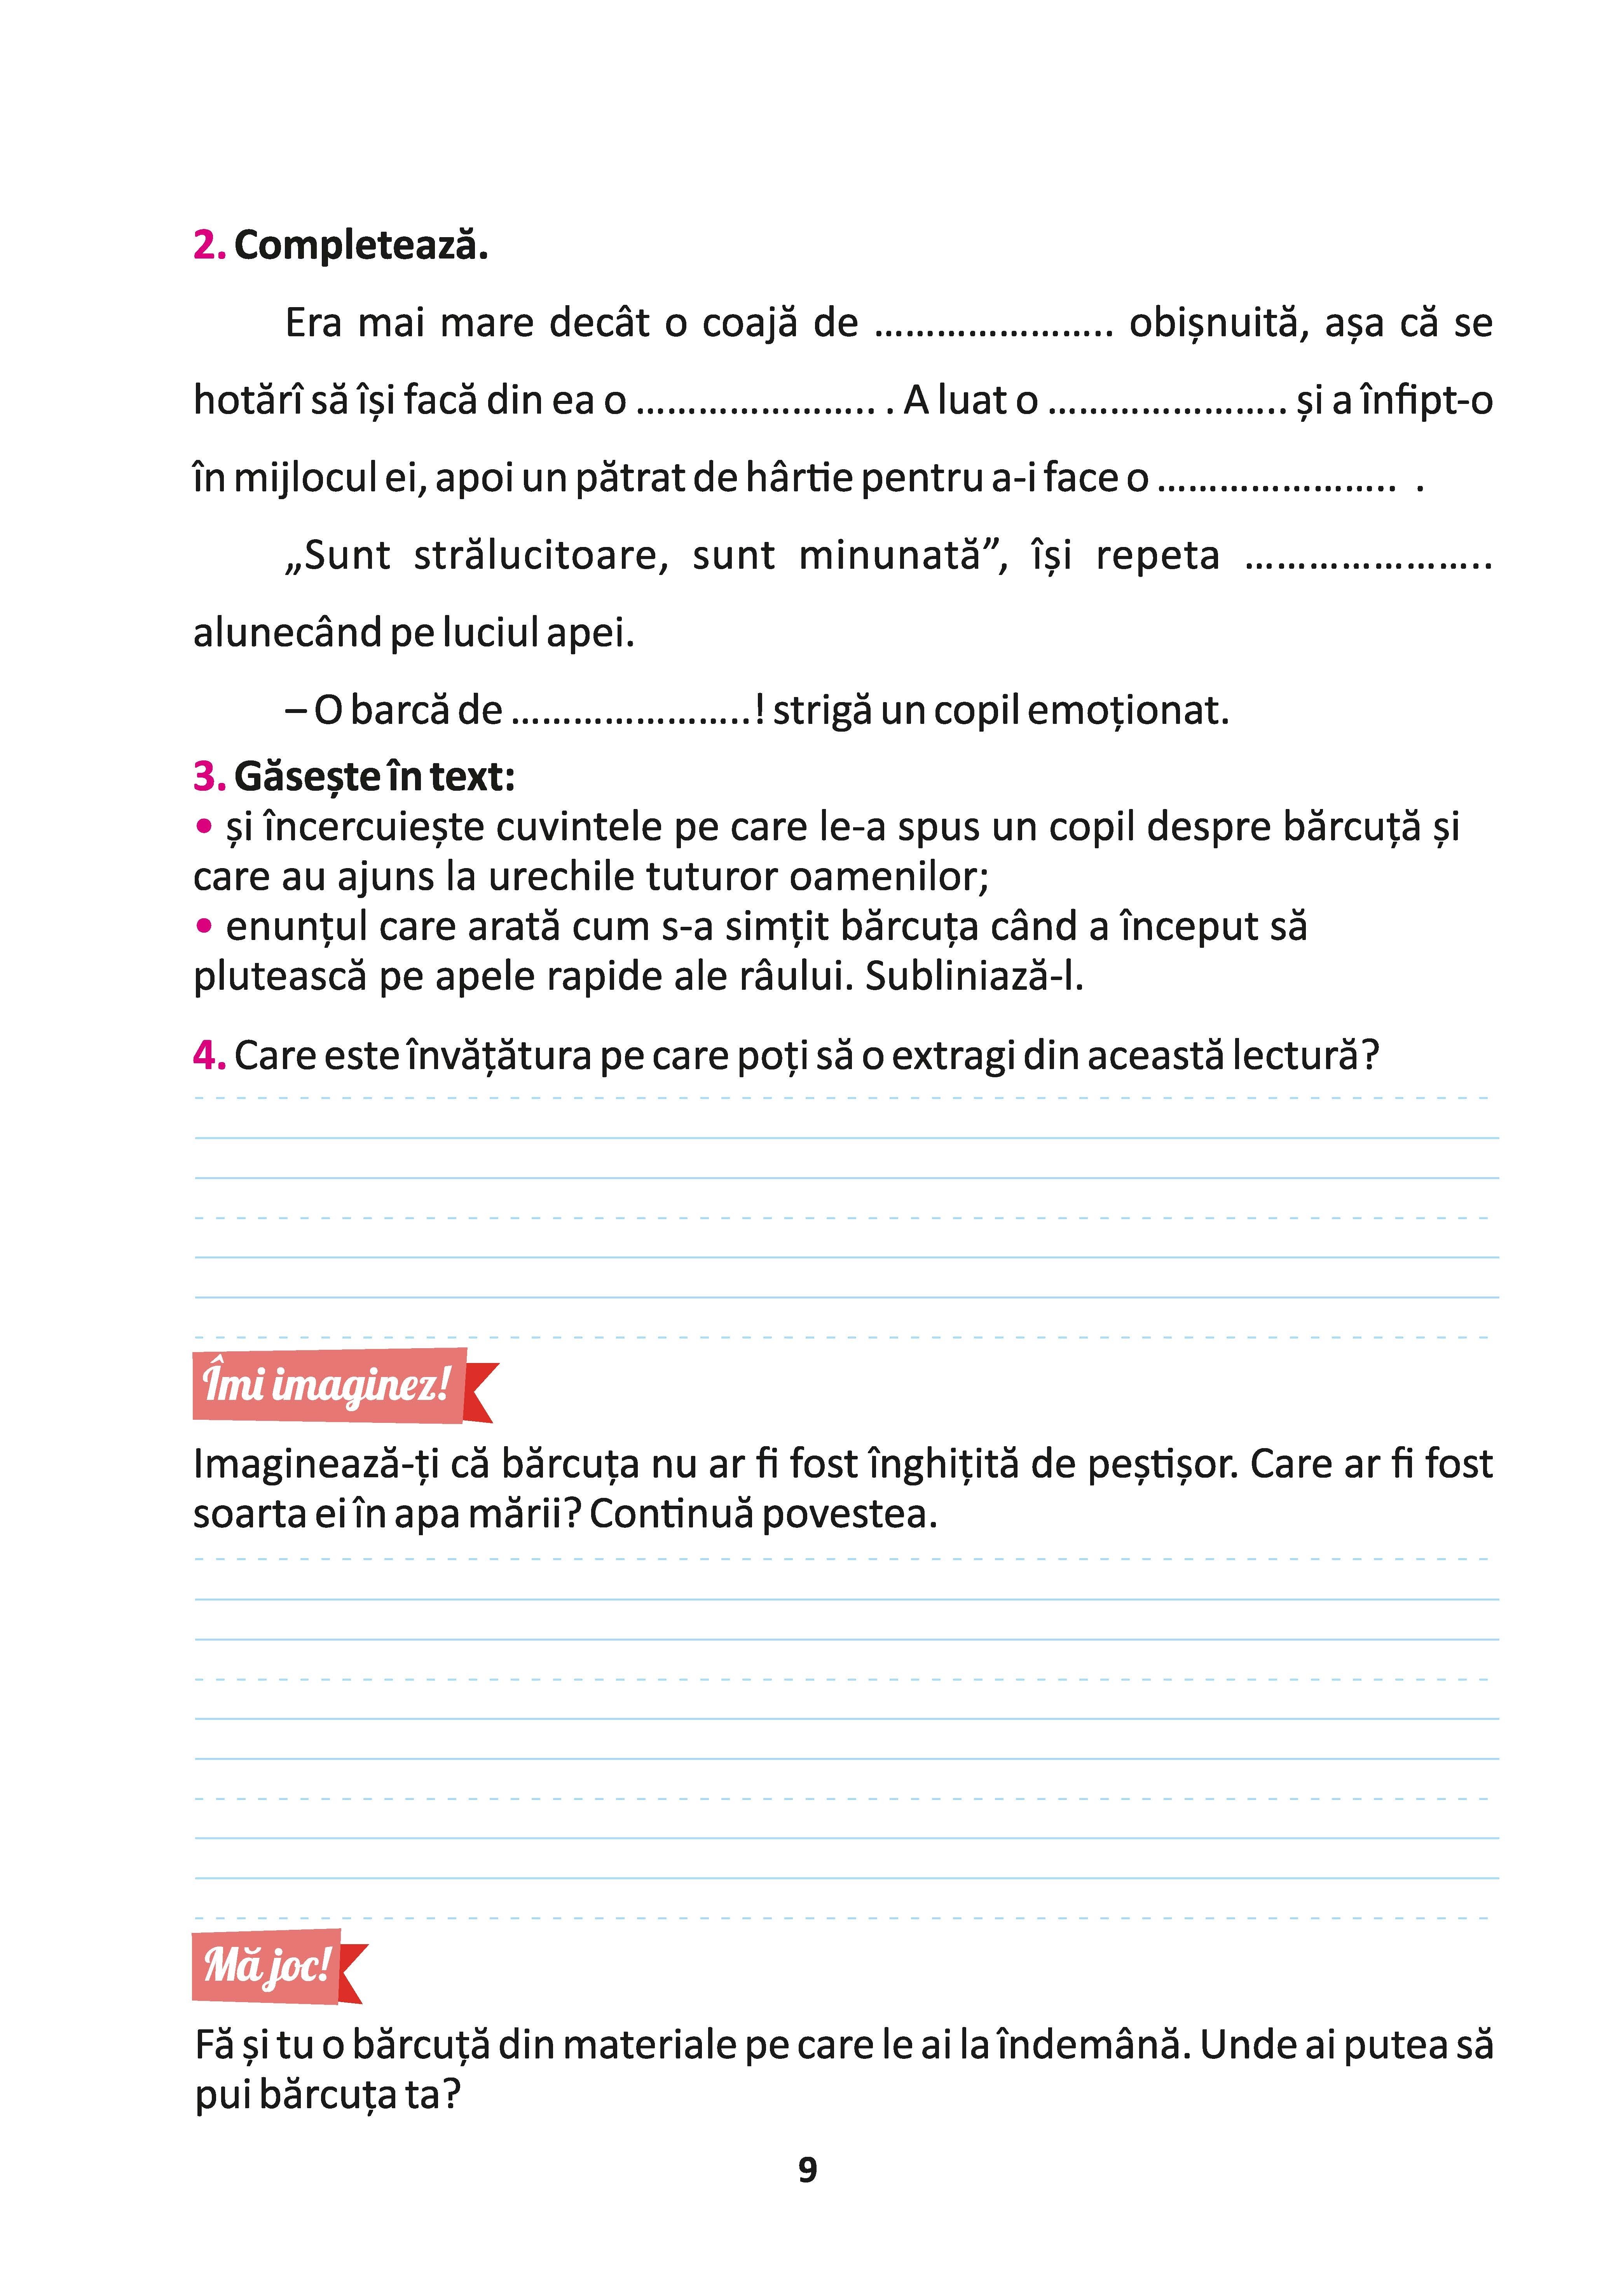 2. Completează.
Era mai mare decât o coajă de ………………….. obișnuită, așa că se
hotărî să își facă din ea o ………………….. . A luat o ………………….. și a înfipt-o
în mijlocul ei, apoi un pătrat de hârtie pentru a-i face o ………………….. .
„Sunt strălucitoare, sunt minunată”, își repeta …………………..
alunecând pe luciul apei.
– O barcă de …………………..! strigă un copil emoționat.
3. Găsește în text:
• și încercuiește cuvintele pe care le-a spus un copil despre bărcuță și
care au ajuns la urechile tuturor oamenilor;
• enunțul care arată cum s-a simțit bărcuța când a început să
plutească pe apele rapide ale râului. Subliniază-l.
4. Care este învățătura pe care poți să o extragi din această lectură?
Îmi imaginez!
Imaginează-ți că bărcuța nu ar fi fost înghițită de peștișor. Care ar fi fost
soarta ei în apa mării? Continuă povestea.
Mă joc!
Fă și tu o bărcuță din materiale pe care le ai la îndemână. Unde ai putea să
pui bărcuța ta?
9